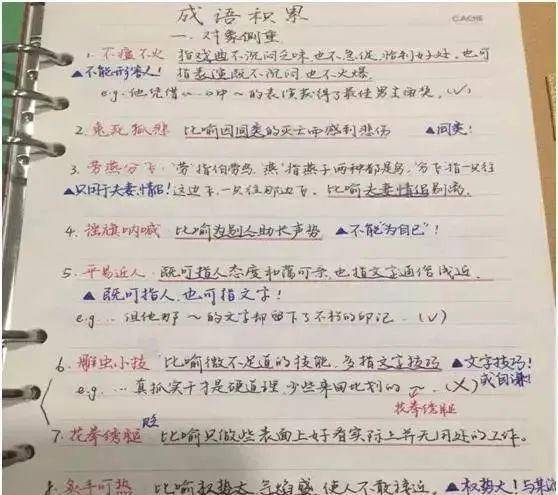 成语积累
CACHE
一. 对象侧重
1. 不瘟不火 指戏曲不沉闷乏味也不急促,恰到好处,也可
▲不能形容人! 指表演既不沉闷也不火爆.
e.g. 他凭借《…》中~的表演获得了最佳男主角奖.(√)
2. 兔死狐悲 比喻因同类的灭亡而感到悲伤 ▲同类!
3. 劳燕分飞:"劳"指伯劳鸟,燕"指燕子两种都是鸟,分飞"指一只往
▲只用于夫妻,情侣! 这边飞,一只往那边飞. 比喻夫妻情侣别离.
4. 摇旗呐喊 比喻为别人助长声势 ▲不能"为自己"!
5. 平易近人:既可指人态度和蔼可亲,也指文字通俗浅近.
▲ 既可指人,也可指文字!
e.g.… 但他那~的文字却留下了不朽的印记.(√)
6. 雕虫小技 比喻微不足道的技能,多指文字技巧 ▲文字技巧!
或自谦!
e.g. … 真抓实干才是硬道理,少些来回比划的~.(×)
花拳绣腿
贬
7. 花拳绣腿 比喻只做些表面上好看实际上并无用处的工作.
8. 炙手可热 比喻权势大,气焰盛,使人不敢接近 ▲权势大!